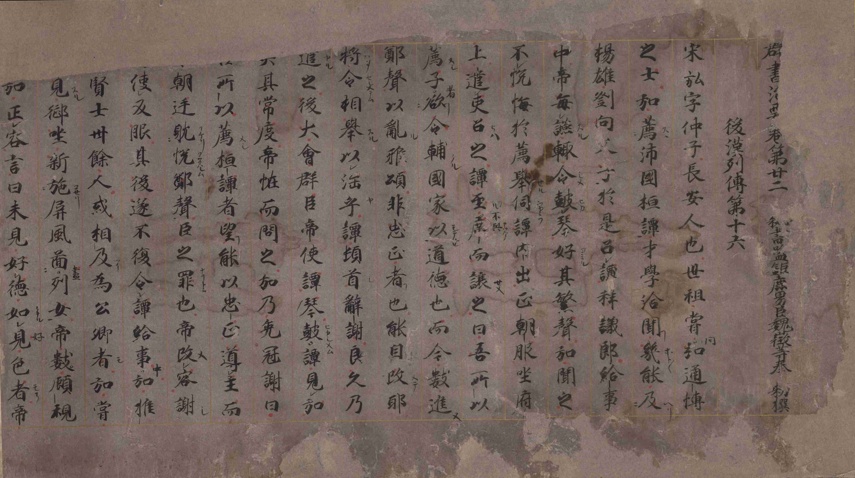 群書治要卷第廿二 秘書監鉅鹿男臣魏徵等奉 勅撰
後漢列傳第十六
宋弘字仲子長安人也世祖嘗問弘通博
之士弘薦沛國桓譚才學洽聞幾能及
楊雄劉向父子於是召譚拜議郎給事
中帝每讌輙令鼓琴好其繁聲弘聞之
不悅悔於薦舉伺譚內出正朝服坐府
上遣吏召之譚至不与席而讓之曰吾所以
薦子者欲令輔國家以道德也而今數進
鄭聲以亂雅頌非忠正者也能自改耶
將令相舉以法乎譚頓首辭謝良久乃
遣之後大會群臣帝使譚琴鼓譚見弘
失其常度帝怪而問之弘乃免冠謝曰
臣所以薦桓譚者望能以忠正導主而
朝廷耽悅鄭聲臣之罪也帝改容謝
使反服其後遂不復令譚給事中弘推
賢士卅餘人或相及為公卿者弘當
見御坐新施屏風畫列女帝數顧視
弘正容言曰未見好德如見好色者帝